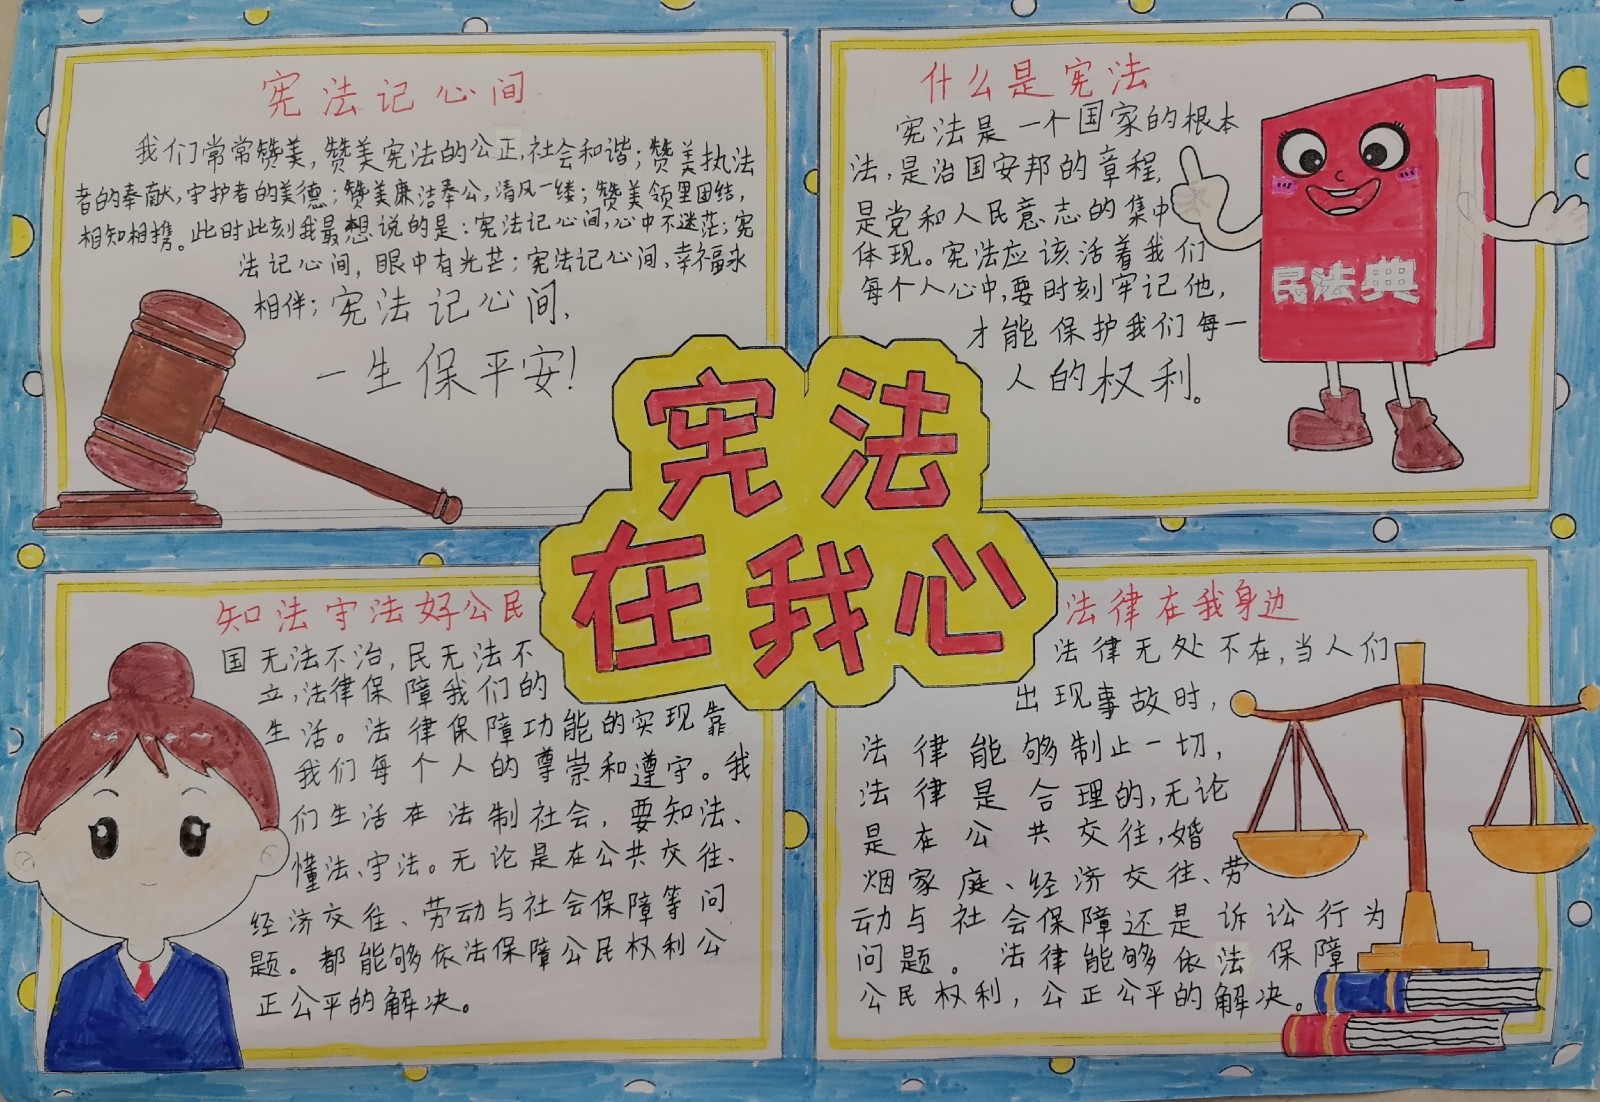 宪法记心间
我们常常赞美，赞美宪法的公正，社会和谐；赞美执法
者的奉献，守护者的美德；赞美廉洁奉公，清风一缕；赞美领里团结，
相知相携。此时此刻我最想说的是：宪法记心间，心中不迷茫；宪
法记心间，眼中有光芒；宪法记心间，幸福永
相伴；宪法记心间，
一生保平安！
什么是宪法
宪法是一个国家的根本
法，是治国安邦的章程，
是党和人民意志的集中
体现。宪法应该活着我们
每个人心中，要时刻牢记他，
才能保护我们每一
人的权利。
民法典
宪法
在我心
知法守法好公民
国无法不治，民无法不
立，法律保障我们的
生活。法律保障功能的实现靠
我们每个人的尊崇和遵守。我
们生活在法制社会，要知法、
懂法、守法。无论是在公共交往、
经济交往、劳动与社会保障等问
题。都能够依法保障公民权利公
正公平的解决。
法律在我身边
法律无处不在，当人们
出现事故时，
法律能够制止一切，
法律是合理的，无论
是在公共交往，婚
烟家庭、经济交往、劳
动与社会保障还是诉讼行为
问题。法律能够依法保障
公民权利，公正公平的解决。